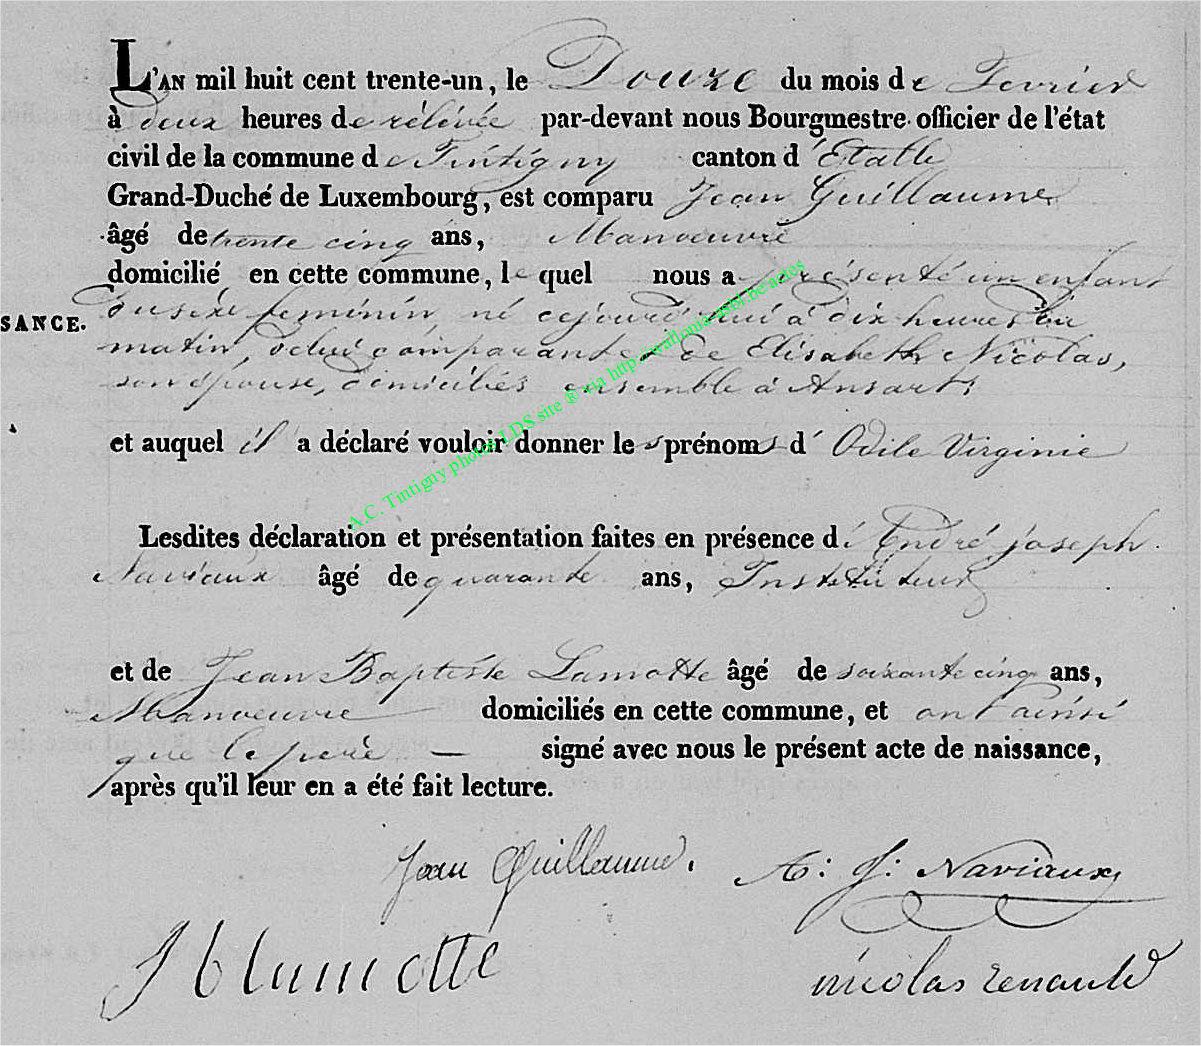 L'AN mil huit cent trente-un, le Douze du mois de Fevrier
à deux heures de rélévée par-devant nous Bourgmestre officier de l'état
civil de la commune de Tintigny canton d'Etalle
Grand-Duché de Luxembourg, est comparu Jean Guillaume
âgé de trente cinq ans, Manoeuvre
domicilié en cette commune, le quel nous a présenté un enfant
SANCE.
du sexe feminin né cejourd'hui à dix heures du
matin, de lui comparant et de Elisabeth Nicolas,
son épouse, domiciliés ensemble à Ansart;
et auquel il a déclaré vouloir donner les prénoms d' Odile Virginie
A.C. Tintigny photos LDS site ® via http://wallonia-asbl.be/actes
Lesdites déclaration et présentation faites en présence d'André joseph
Naviaux âgé de quarante ans, Instituteur
et de Jean Baptiste Lamotte âgé de soixante cinq ans,
Manoeuvre domiciliés en cette commune, et ont ainsi
que le pere — signé avec nous le présent acte de naissance,
après qu'il leur en a été fait lecture.
Jean Guillaume.
A: J: Naviaux
J b lamotte
nicolas renauld